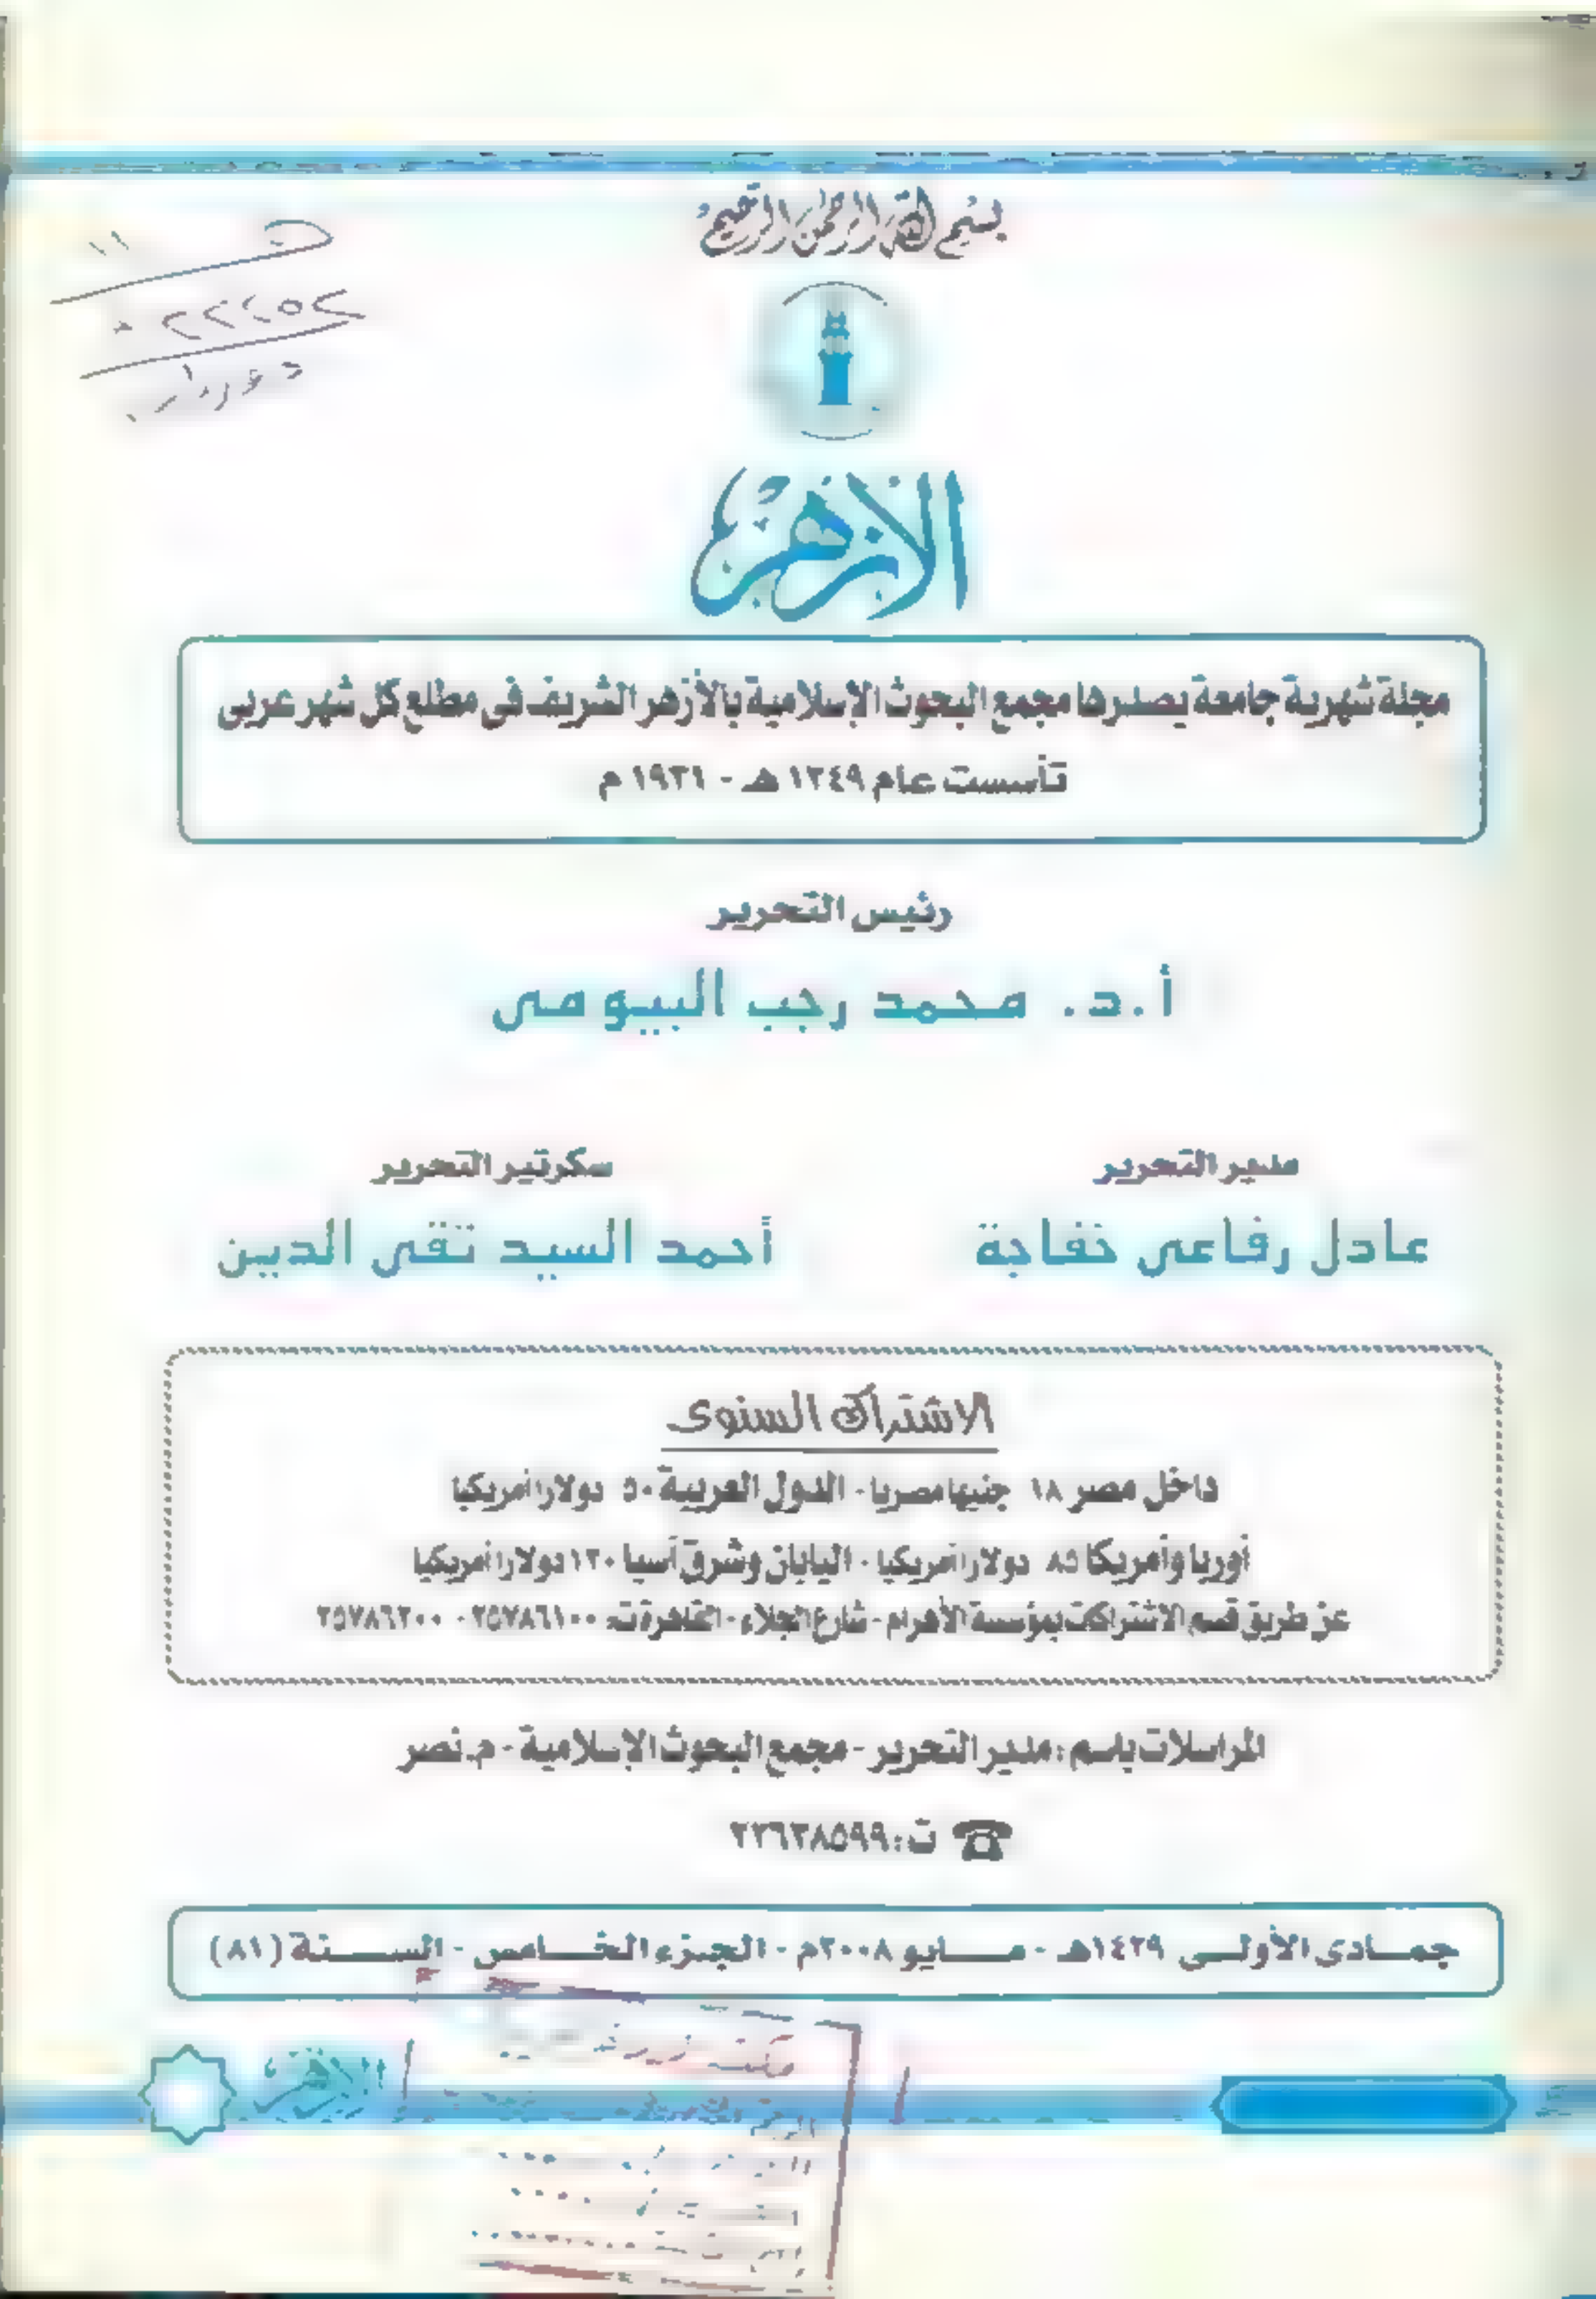 بسم الله الرحمن الرحيم
الأزهر
مجلة شهرية جامعة يصدرها مجمع البحوث الإسلامية بالأزهر الشريف فى مطلع كل شهر عربى
تأسست عام ١٣٤٩ هـ - ١٩٣١ م
رئيس التحرير
أ.د. محمد رجب البيومى
مدير التحرير
عادل رفاعى خفاجة
سكرتير التحرير
أحمد السيد تقى الدين
الاشتراك السنوى
داخل مصر ١٨ جنيها مصريا - الدول العربية ٥٠ دولارا أمريكيا
أوربا وأمريكا ٨٥ دولارا أمريكيا - اليابان وشرق آسيا ١٢٠ دولارا أمريكيا
عن طريق قسم الاشتراكات بمؤسسة الأهرام - شارع الجلاء - القاهرة ت: ٢٥٧٨٦١٠٠ - ٢٥٧٨٦٢٠٠
المراسلات باسم: مدير التحرير - مجمع البحوث الإسلامية - م. نصر
ت: ٢٢٦٣٨٥٩٩
جمادى الأولى ١٤٢٩هـ - مايو ٢٠٠٨م - الجزء الخامس - السنة (٨١)
الأزهر